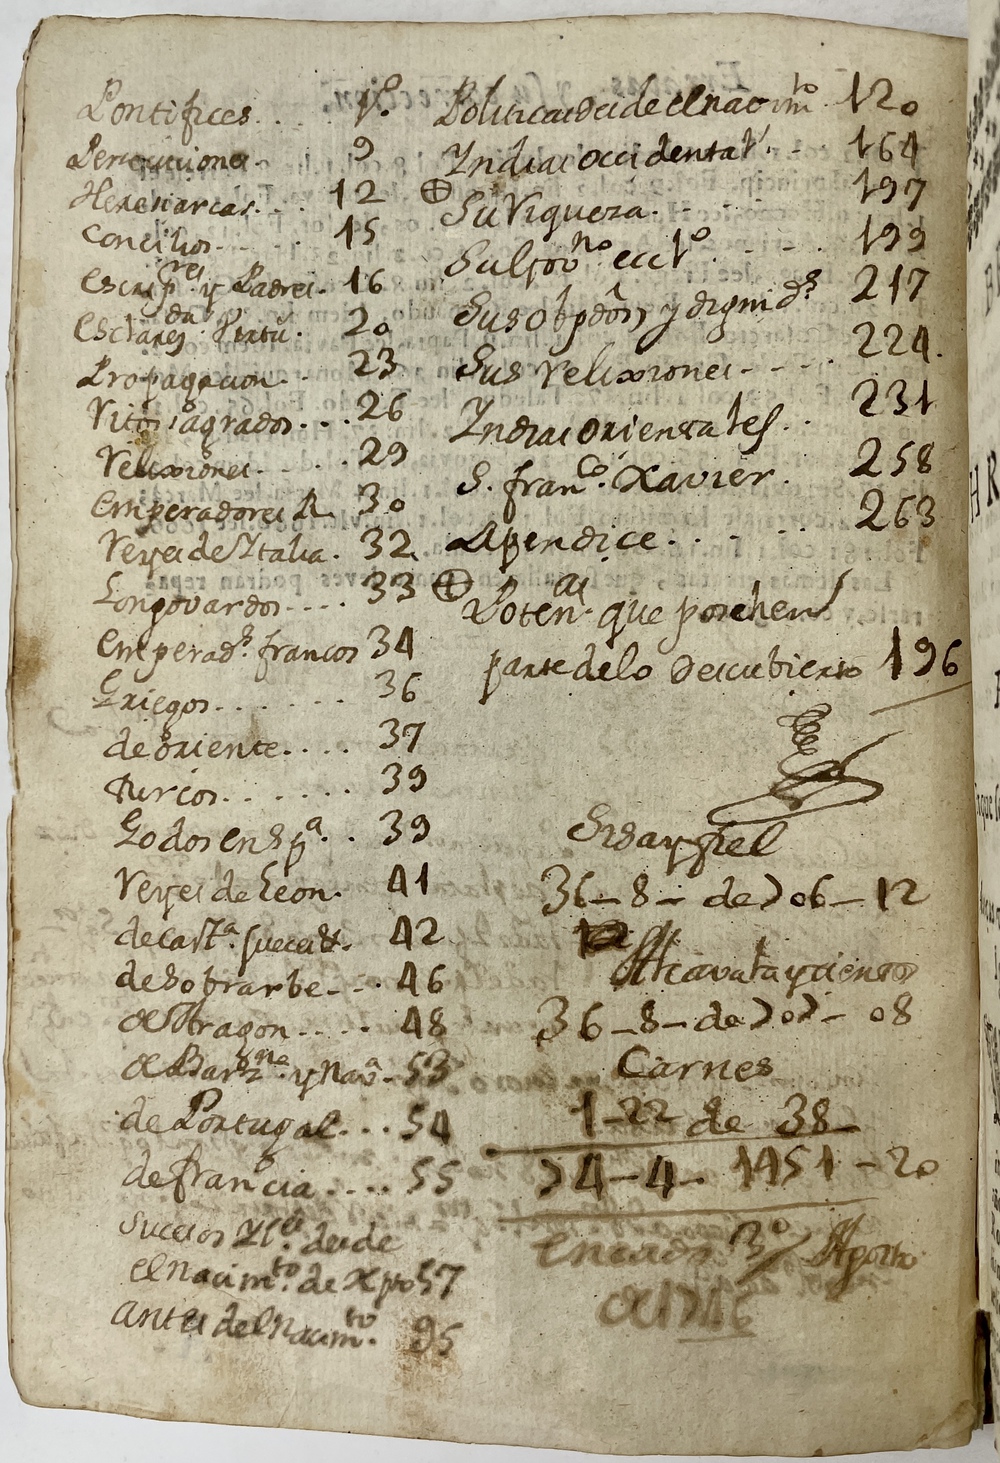 Pontifices.... 1º.
Persecuciones. 9
Heresiarcas... 12
Concilios..... 15
Escrip.res y Padres. 16
Esclareg.da Virtu. 20
Propagacion.. 23
Ritos sagrados... 26
Relixiones.... 29
Emperadores R. 30
Reyes de Ytalia. 32
Longovardos.... 33
Emperad.s francos 34
Griegos....... 36
de Oriente.... 37
Turcos....... 39
Godos en Sp.a.. 39
Reyes de Leon. 41
de Cast.a 42
de Sobrarbe... 46
de Aragon.... 48
de Barz.na y Nav.a. 53
de Portugal... 54
de francia.... 55
Sucesos desde
el nacim.to de Xpto 57
Antes del nacim.to. 95
Politica desde el nacim.to 120
Yndias occidental.s. 164
⊕ Su Riqueza. 197
Su Gov.no ecc.co 199
Sus Obpdōs y dignid.s 217
Sus Relixiones.... 224.
Yndias orientales.. 231
S. fran.co Xavier. 258
Apendice..... 263
⊕ Poten.as que poschen
parte de lo Descubierto 196
36-8- de 706-12
36-8- de 707- 08
Carnes
1-22 de 38-
74-4- 1451-20
en cada 3º Agosto
de 1746